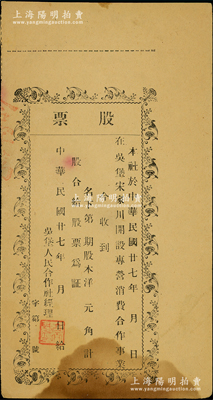 上海陽明拍賣
www.ymauction.com
股票
本社於中華民國廿七年 月 日
在吳堡宋家川開設專營消費合作事業
今收到
名下第 期股本洋 元 角計
股合給股票爲証
中華民國廿七年 月 日給
吳堡人民合作社經理
字第 號
上海陽明拍賣